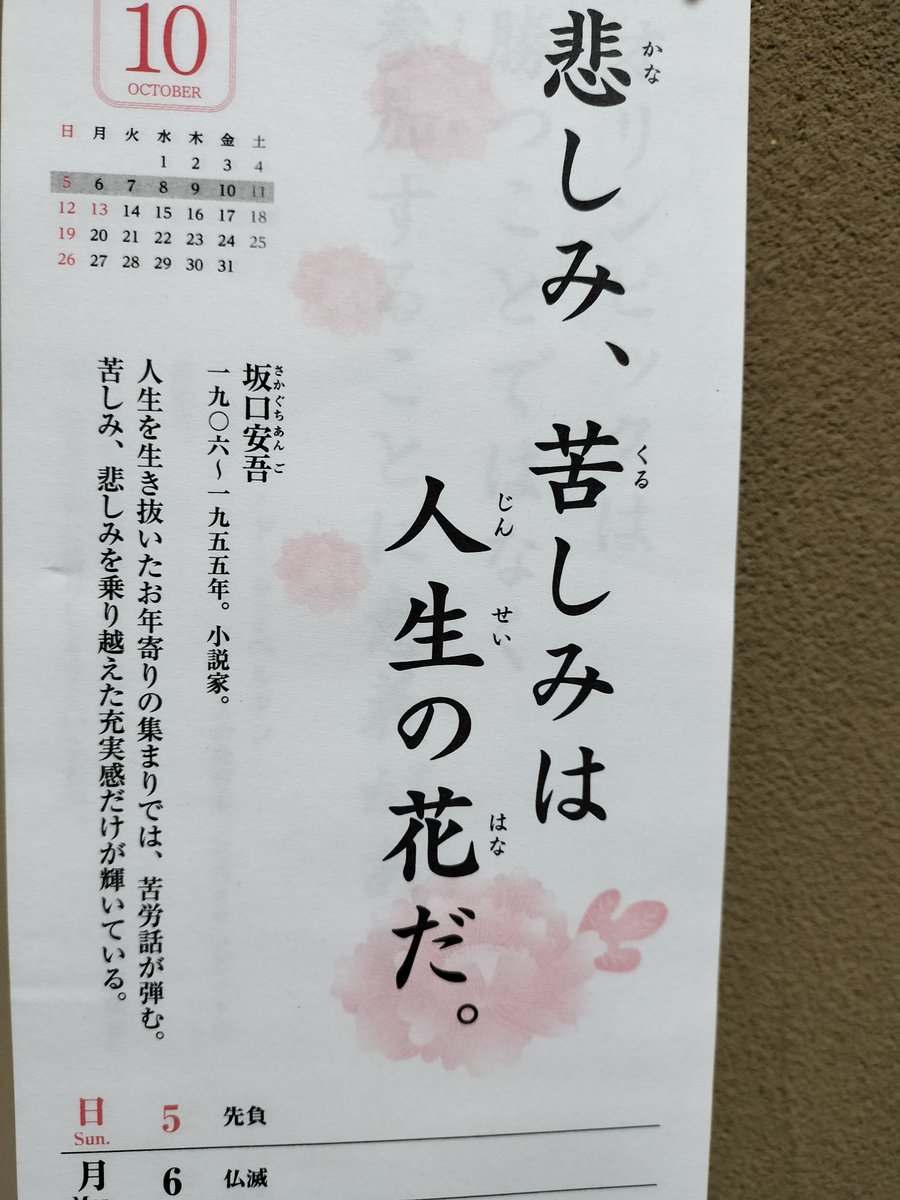 10
OCTOBER
日 月 火 水 木 金 土
1 2 3 4
5 6 7 8 9 10 11
12 13 14 15 16 17 18
19 20 21 22 23 24 25
26 27 28 29 30 31
悲しみ、苦しみは
かな くる
人生の花だ。
じん せい はな
坂口安吾
さかぐちあんご
一九〇六〜一九五五年。小説家。
人生を生き抜いたお年寄りの集まりでは、苦労話が弾む。
苦しみ、悲しみを乗り越えた充実感だけが輝いている。
日 5 先負
Sun.
月 6 仏滅